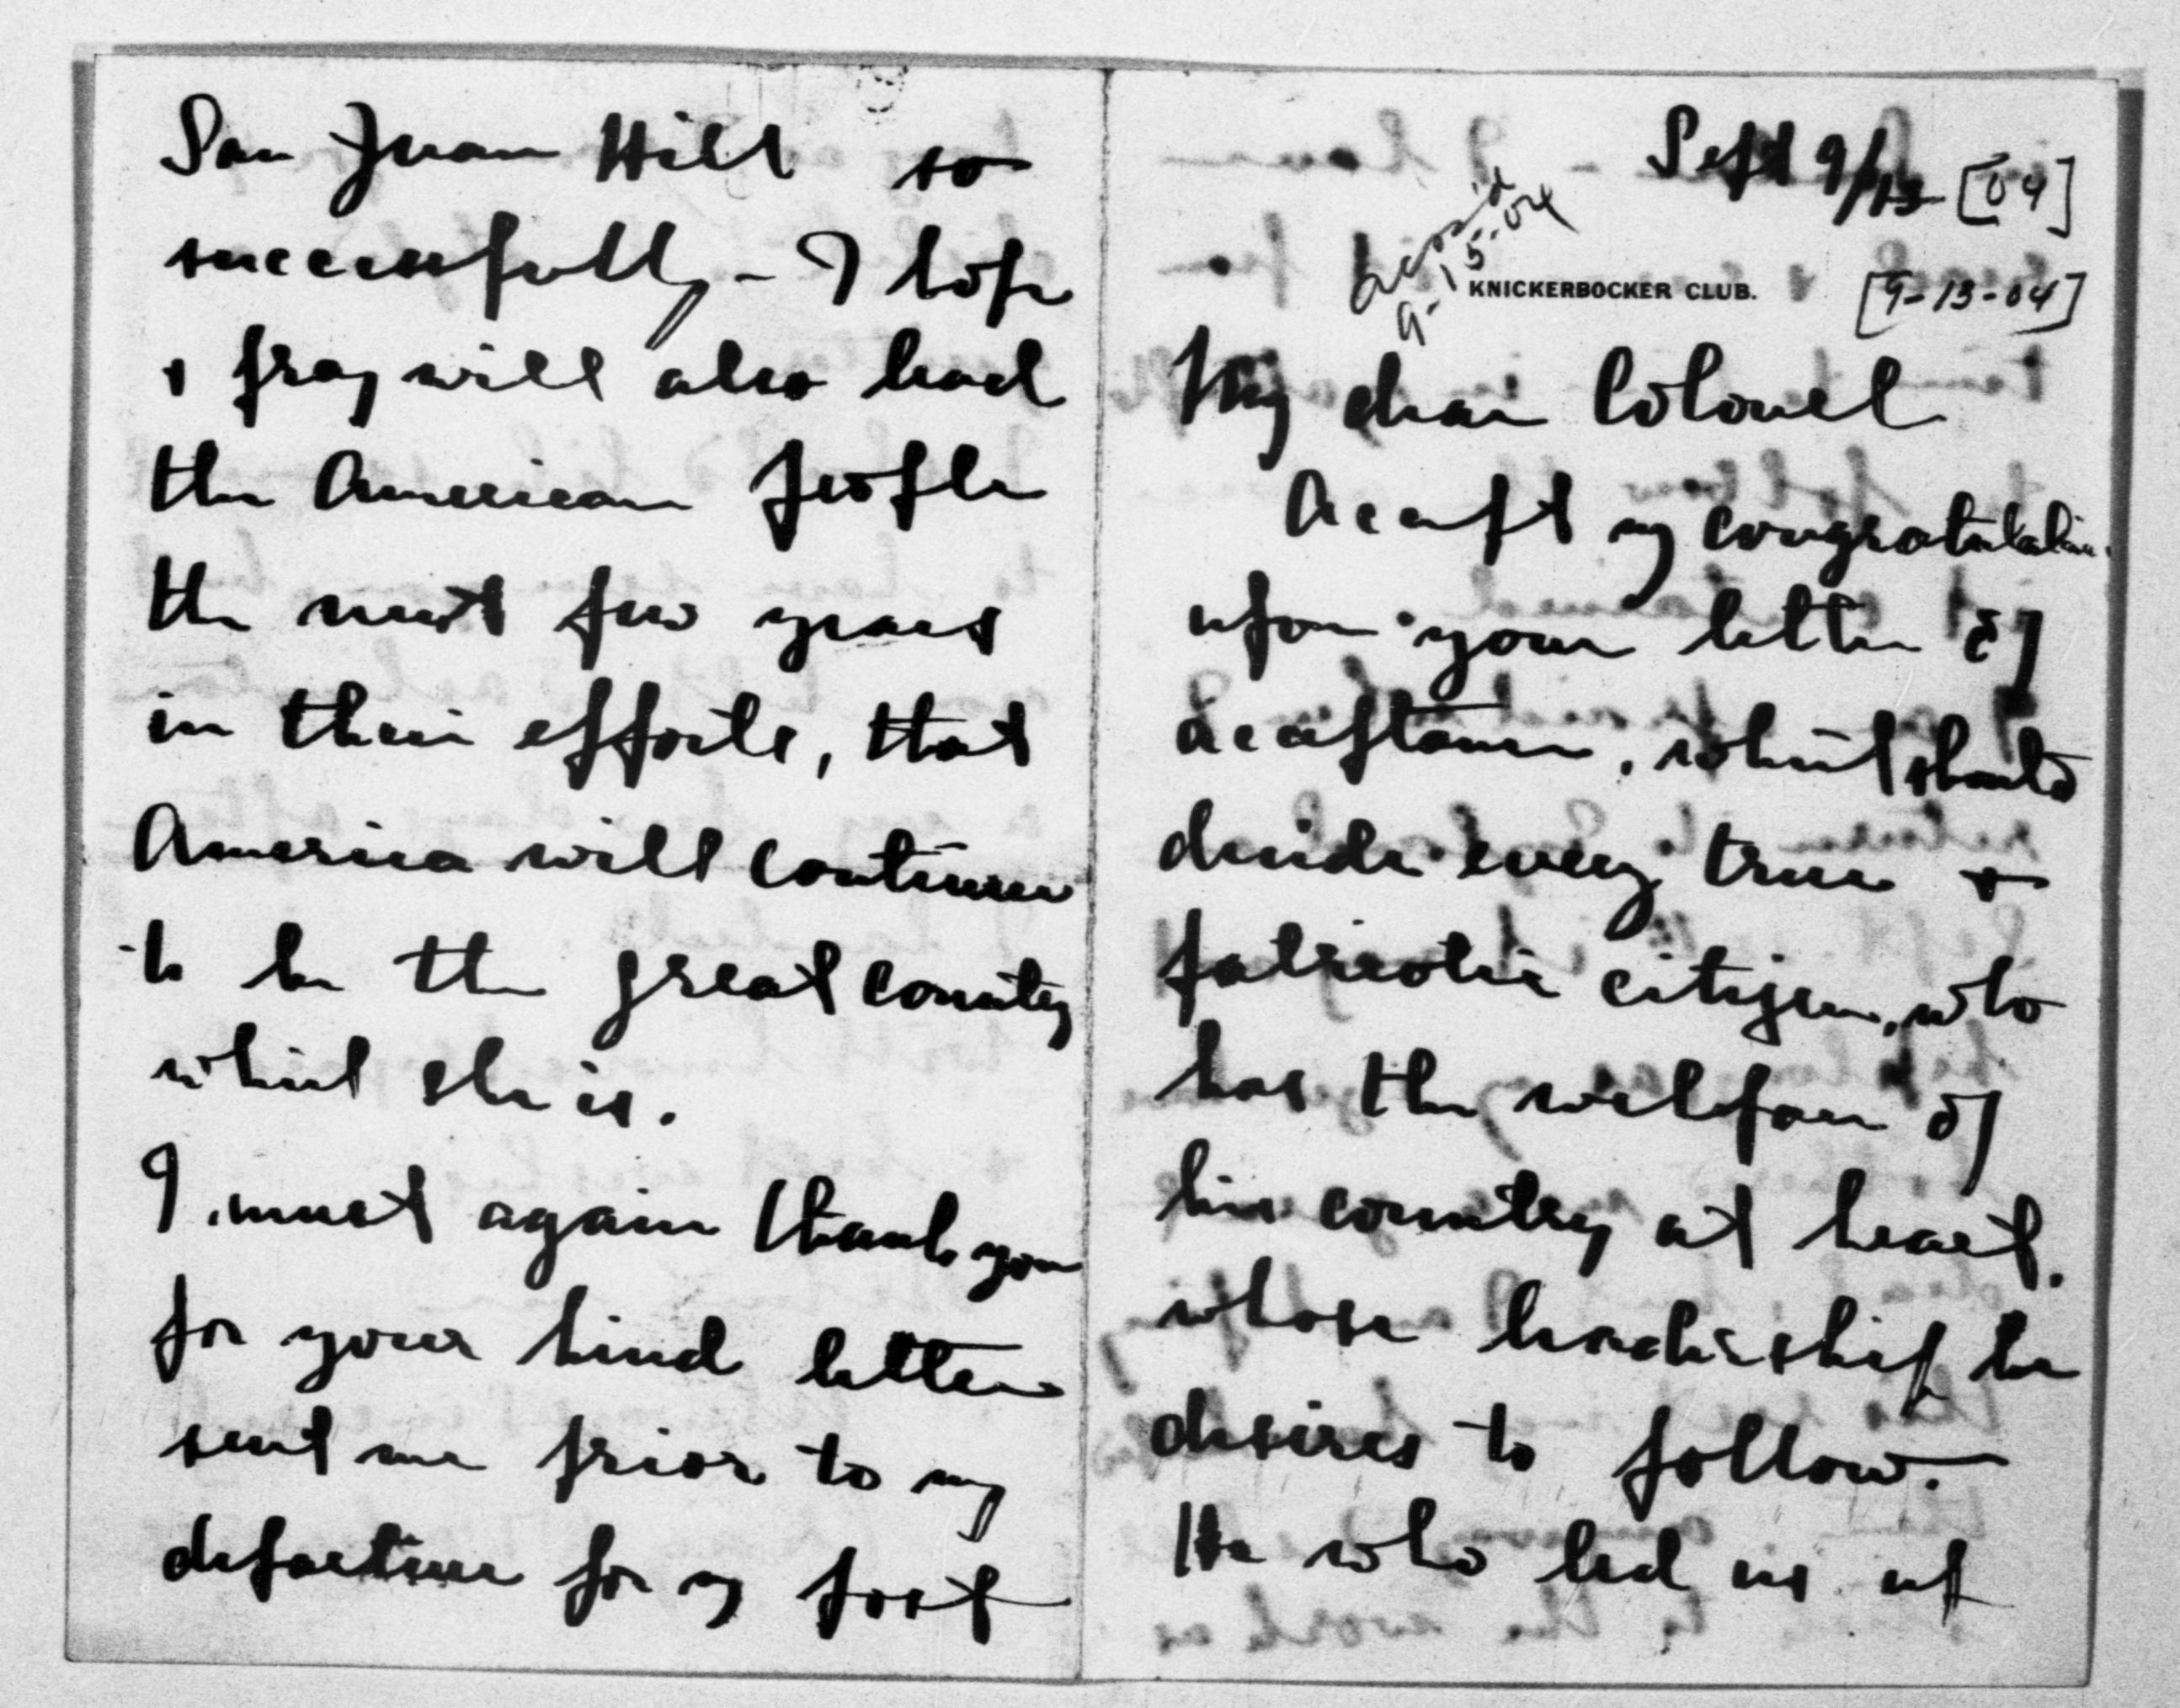 Sept 9/13 [04]
Ackn'd
9-15-04
KNICKERBOCKER CLUB.
[9-13-04]
My dear Colonel
Accept my congratulations
upon your letter of
acceptance, which should
decide every true &
patriotic citizen, who
has the welfare of
his country at heart,
whose leadership he
desires to follow.
He who led us up
San Juan Hill so
successfully - I hope
& pray will also lead
the American people
the next few years
in their efforts, that
America will continue
to be the great country
which she is.
I must again thank you
for your kind letter
sent me prior to my
departure for my post